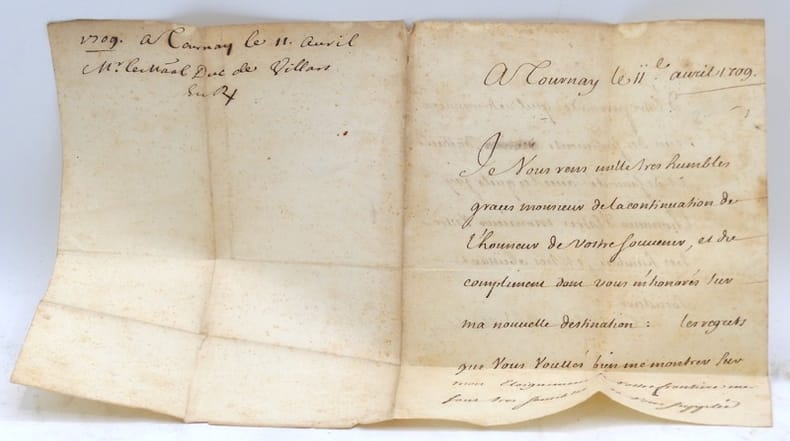 1709. A Tournay le 11. avril
Mr. le Maal Duc de Villars
En R
A Tournay le 11e. avril 1709.
Je Vous rens mille tres humbles
graces monsieur de la continuation de
l'honneur de Votre souvenir, et du
compliment dont vous m'honorés sur
ma nouvelle destination : les regrets
que Vous Voullés bien me montrer sur
mon Eloignement votre frontiere me
sont tres sensibles vous supplie